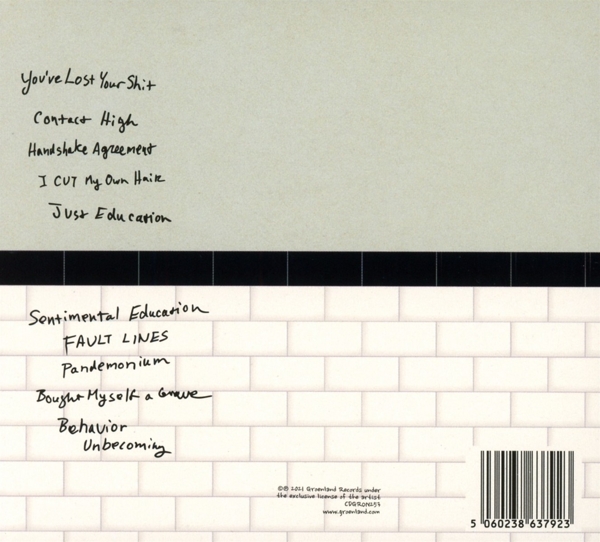 You've Lost Your Shit
Contact High
Handshake Agreement
I CUT My Own Hair
Just Education
Sentimental Education
FAULT LINES
Pandemonium
Bought Myself a Grave
Behavior
Unbecoming
©℗ 2021 Grönland Records under
the exclusive license of the artist
CDGRON257
www.groenland.com
5 060238 637923